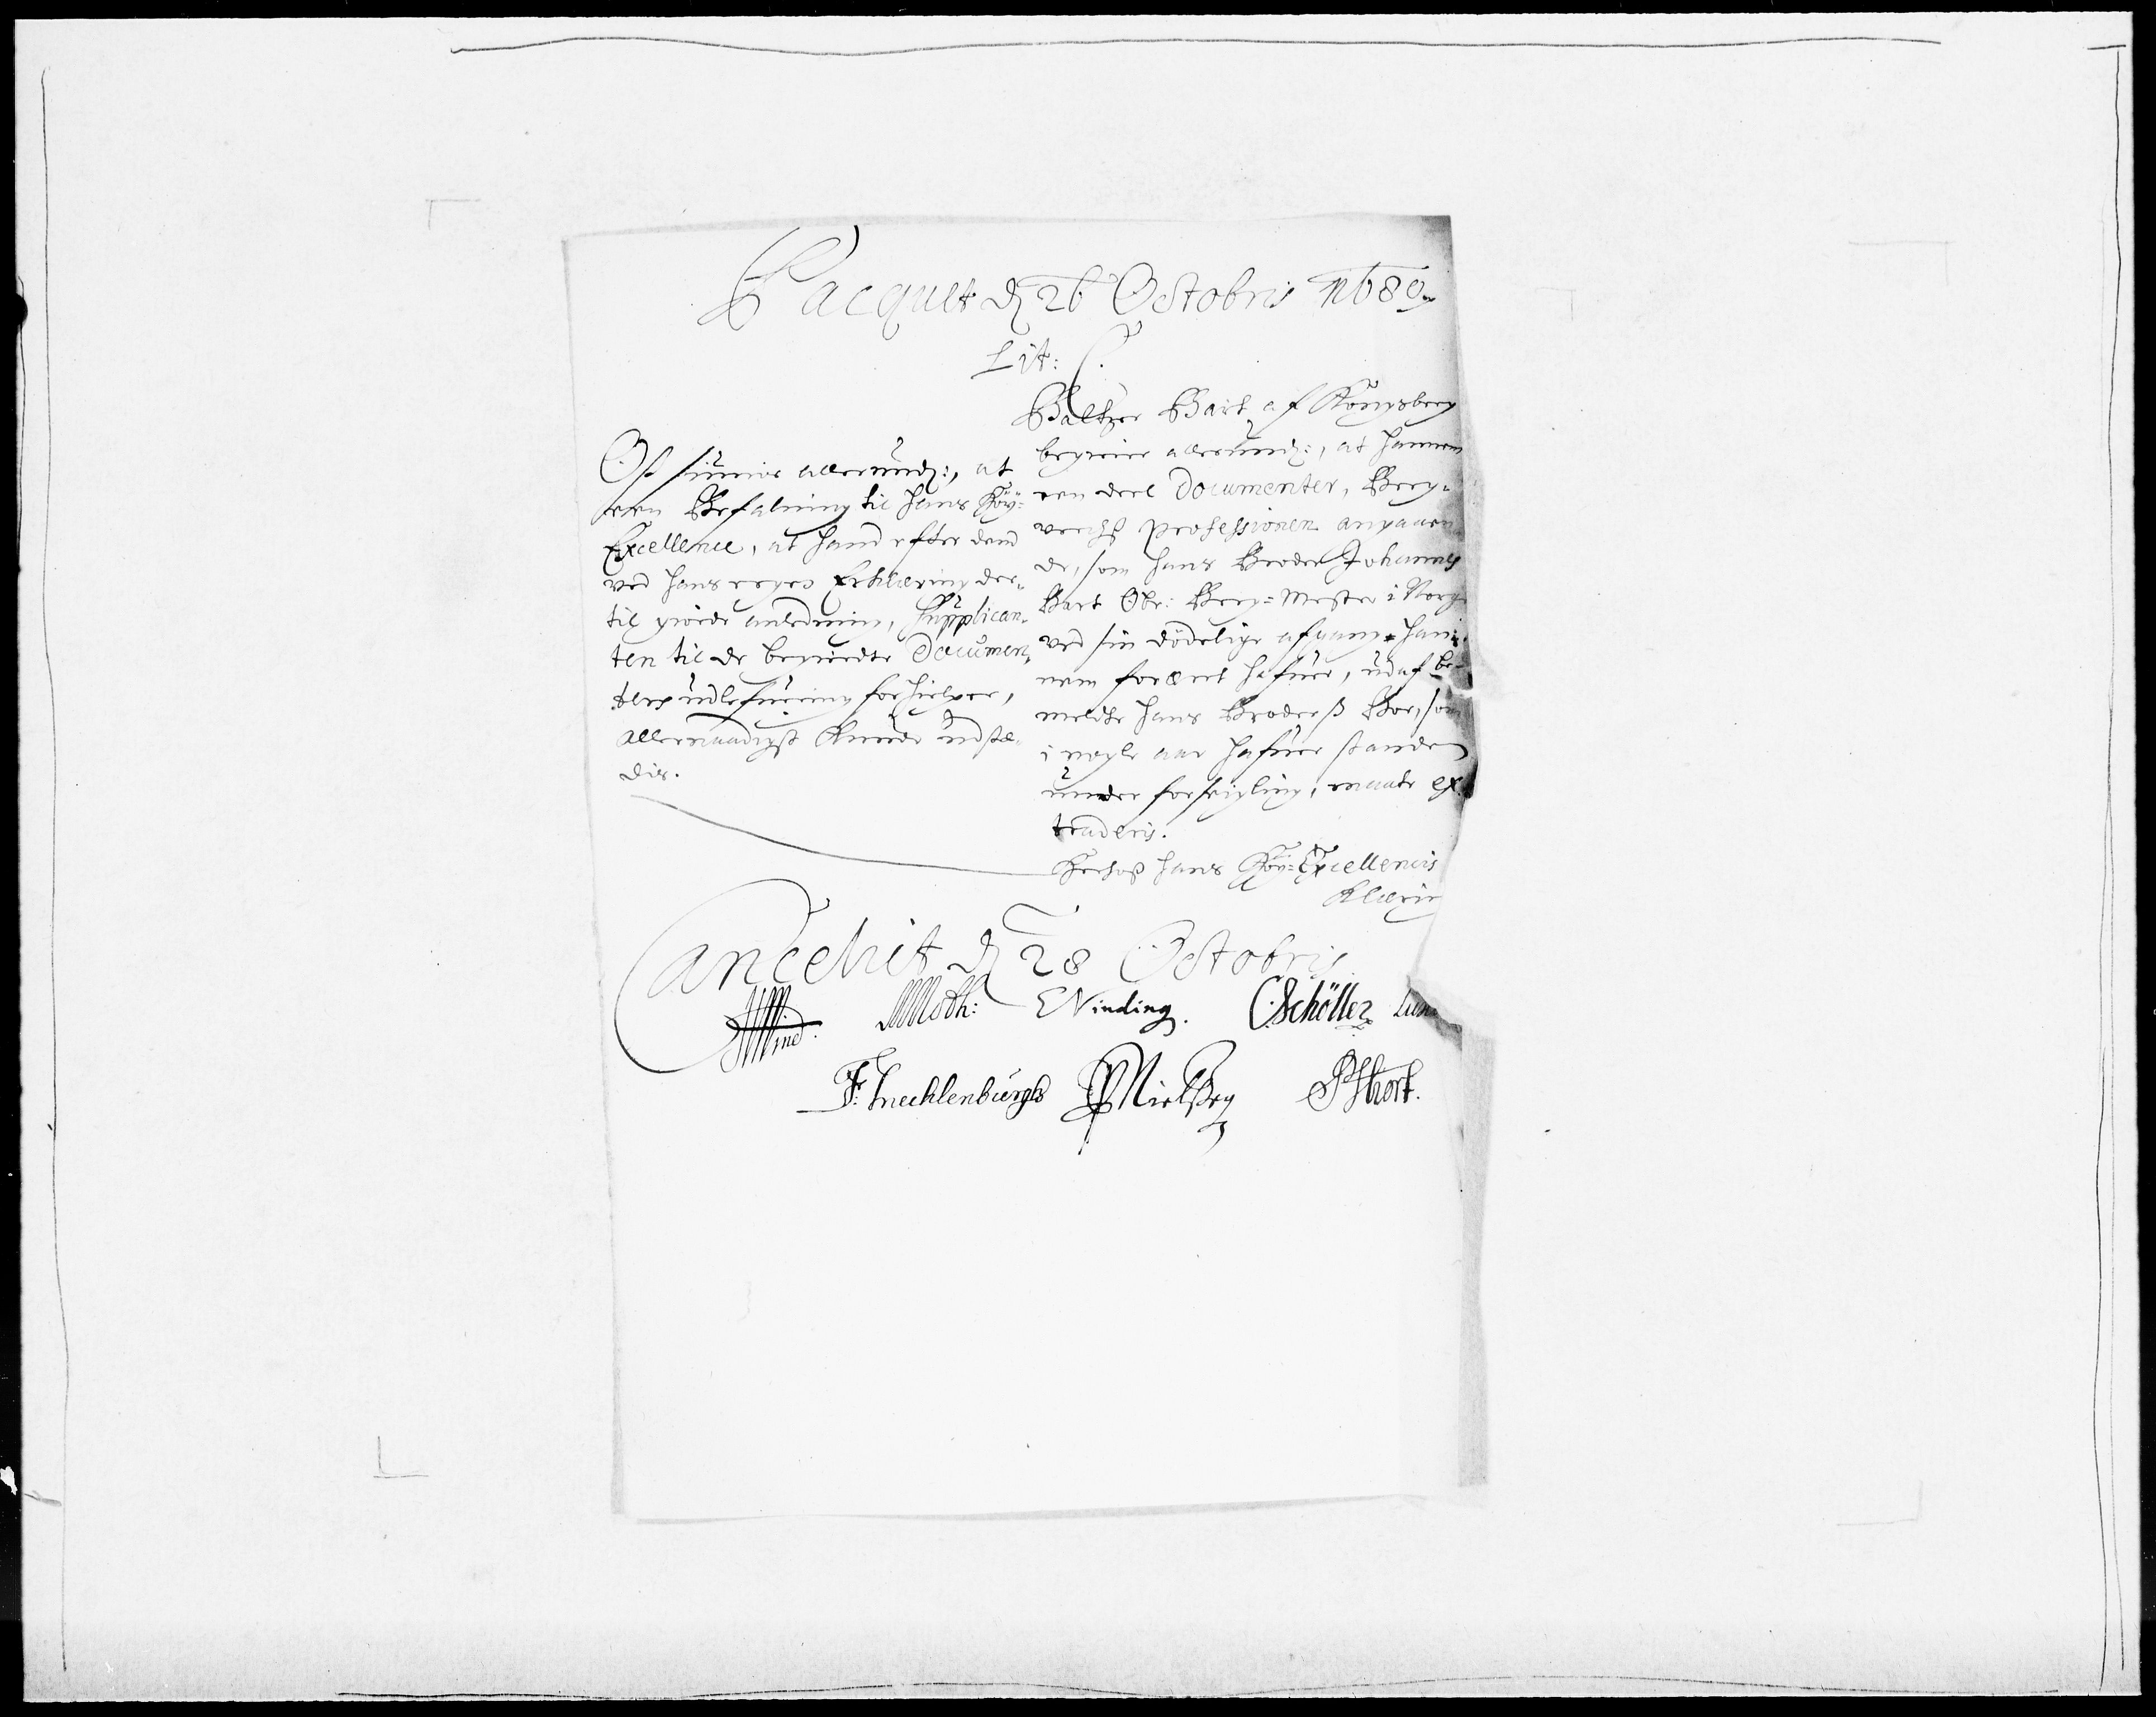 Pacquet d 26 Octobris 1680
Lit: C.
Baltzer Bart af Kongsberg
begierer allerund:, at hannem
een deel Documenter, Berg-
vercks professionen angaaen
de, som hans Broder Johannes
Bart Ober: Berg-Mester i Norge
ved sin dödelige afgang han-
nem foræret hafuer, udaf be-
meldte hans Broders Boe, som
i nogle aar hafuer standen
under forseigling, maate ex-
traderis.
Herhos hans Höy: Excellencis
klæring
Os siunis allerund:, at
een Befalning til hans Höy:
Excellence, at hand efter den
ved hans egen Erklæring der-
til giorde anledning, Supplican-
ten til de begierte Documen-
ters udlefuering forhielper,
allernaadigst kunde udstæ-
dis.
Cancelliet d 28 Octobris
Wind. MMoth: EVinding. CSchöller
F: Mechlenburgh PNielsen